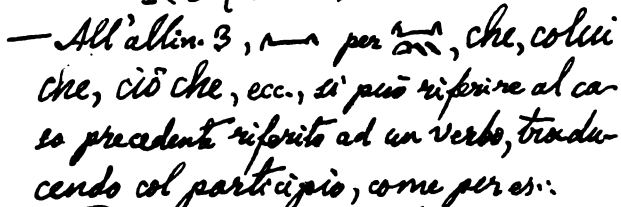 — All'allin. 3, 𓂝 per 𓂝𓏥, che, colui
che, ciò che, ecc., si può riferire al ca-
so precedente riferito ad un verbo, tradu-
cendo col participio, come per es.: